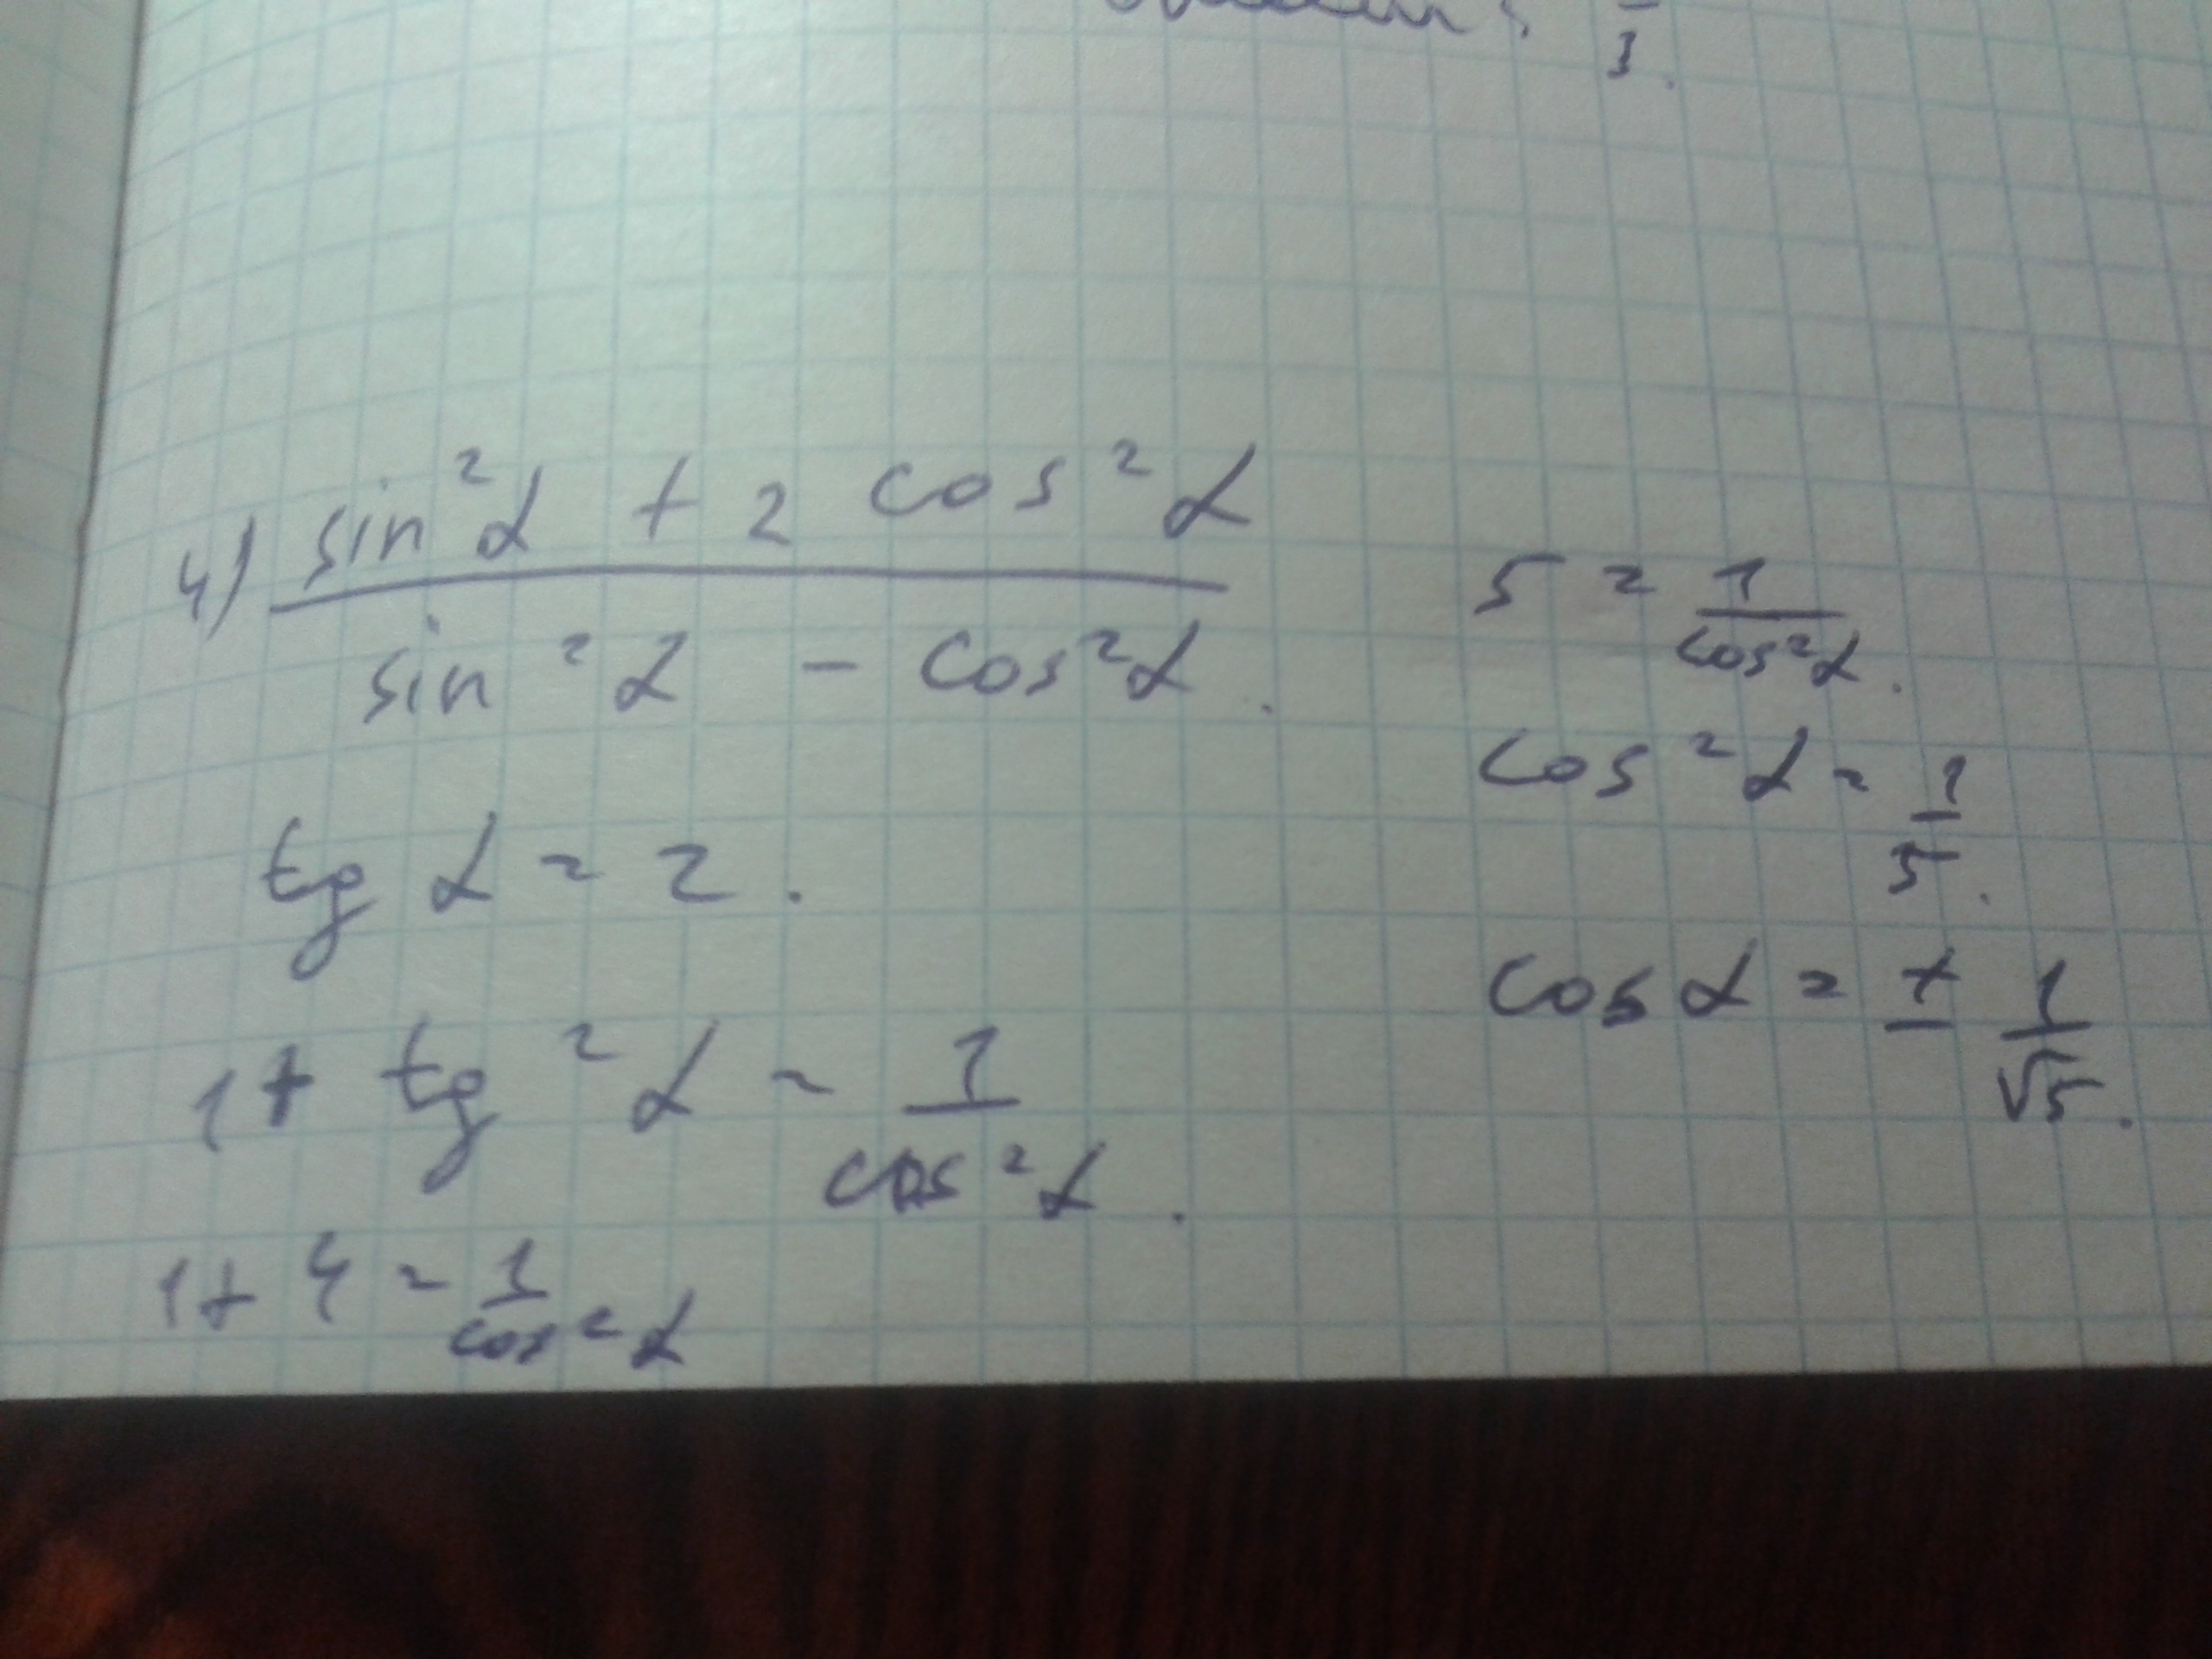 3.
4) (sin²α + 2 cos²α) / (sin²α - cos²α).
tg α = 2.
1 + tg²α = 1 / cos²α.
1 + 4 = 1 / cos²α
5 = 1 / cos²α.
cos²α = 1 / 5.
cos α = ± 1 / √5.